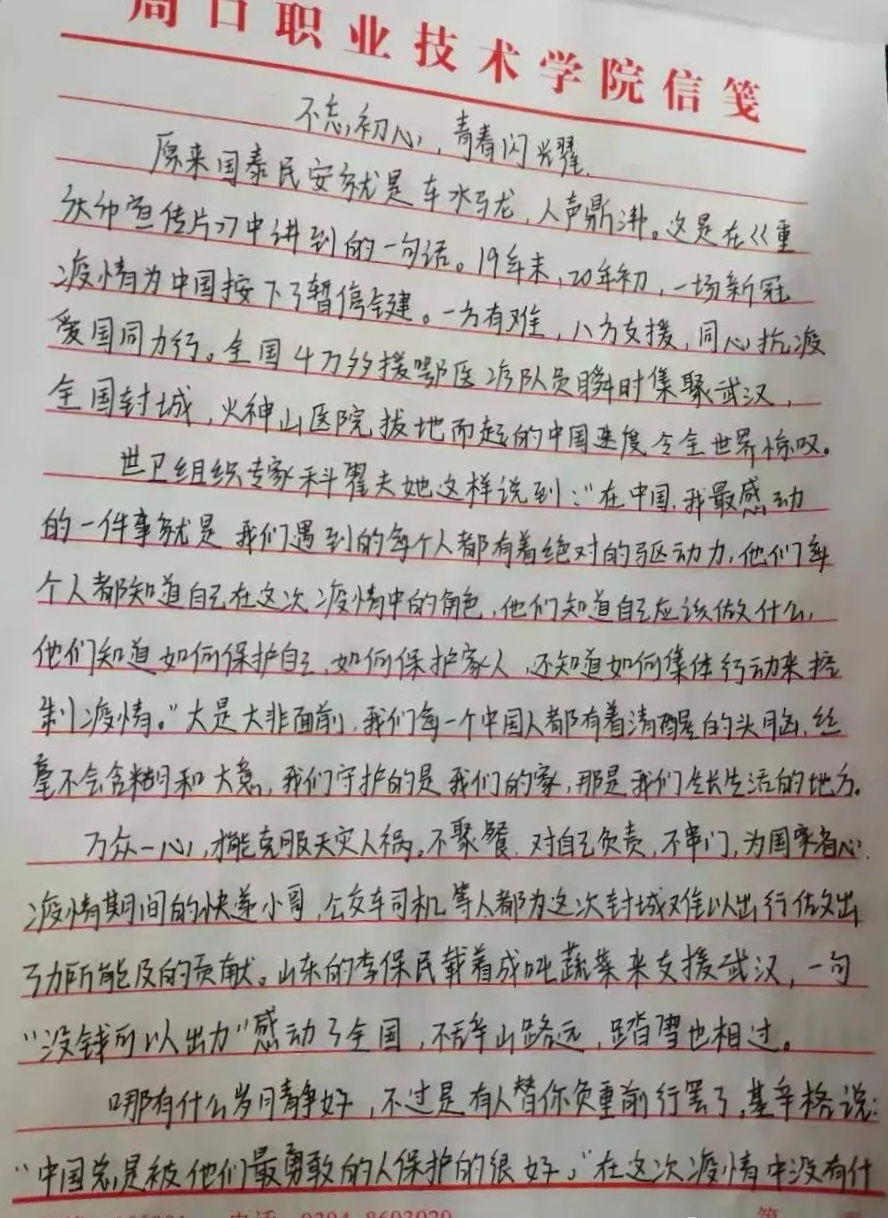 周口职业技术学院信笺
不忘初心,青春闪耀.
原来国泰民安就是车水马龙,人声鼎沸。这是在《重
宣传片》中讲到的一句话。19年末,20年初,一场新冠
疫情为中国按下了暂停键。一方有难,八方支援,同心抗疫
爱国同力行。全国4万多援鄂医疗队员瞬时集聚武汉,
全国封城,火神山医院拔地而起的中国速度令全世界惊叹。
世卫组织专家科翟夫她这样说到:“在中国,我最感动
的一件事就是我们遇到的每个人都有着绝对的驱动力,他们每
个人都知道自己在这次疫情中的角色,他们知道自己应该做什么,
他们知道如何保护自己,如何保护家人,还知道如何集体行动来控
制疫情。”大是大非面前,我们每一个中国人都有着清醒的头脑,丝
毫不会含糊和大意,我们守护的是我们的家,那是我们生长生活的地方。
万众一心,才能克服天灾人祸。不聚餐,对自己负责,不串门,为国家省心.
疫情期间的快递小哥,公交车司机等人都为这次封城难以出行做出
了力所能及的贡献。山东的李保民载着成吨蔬菜来支援武汉,一句
“没钱可以出力”感动了全国,不辞山路远,踏雪也相过。
哪有什么岁月静好,不过是有人替你负重前行罢了,基辛格说:
“中国总是被他们最勇敢的人保护的很好。”在这次疫情中没有什
电话 0394-8603020
第 页